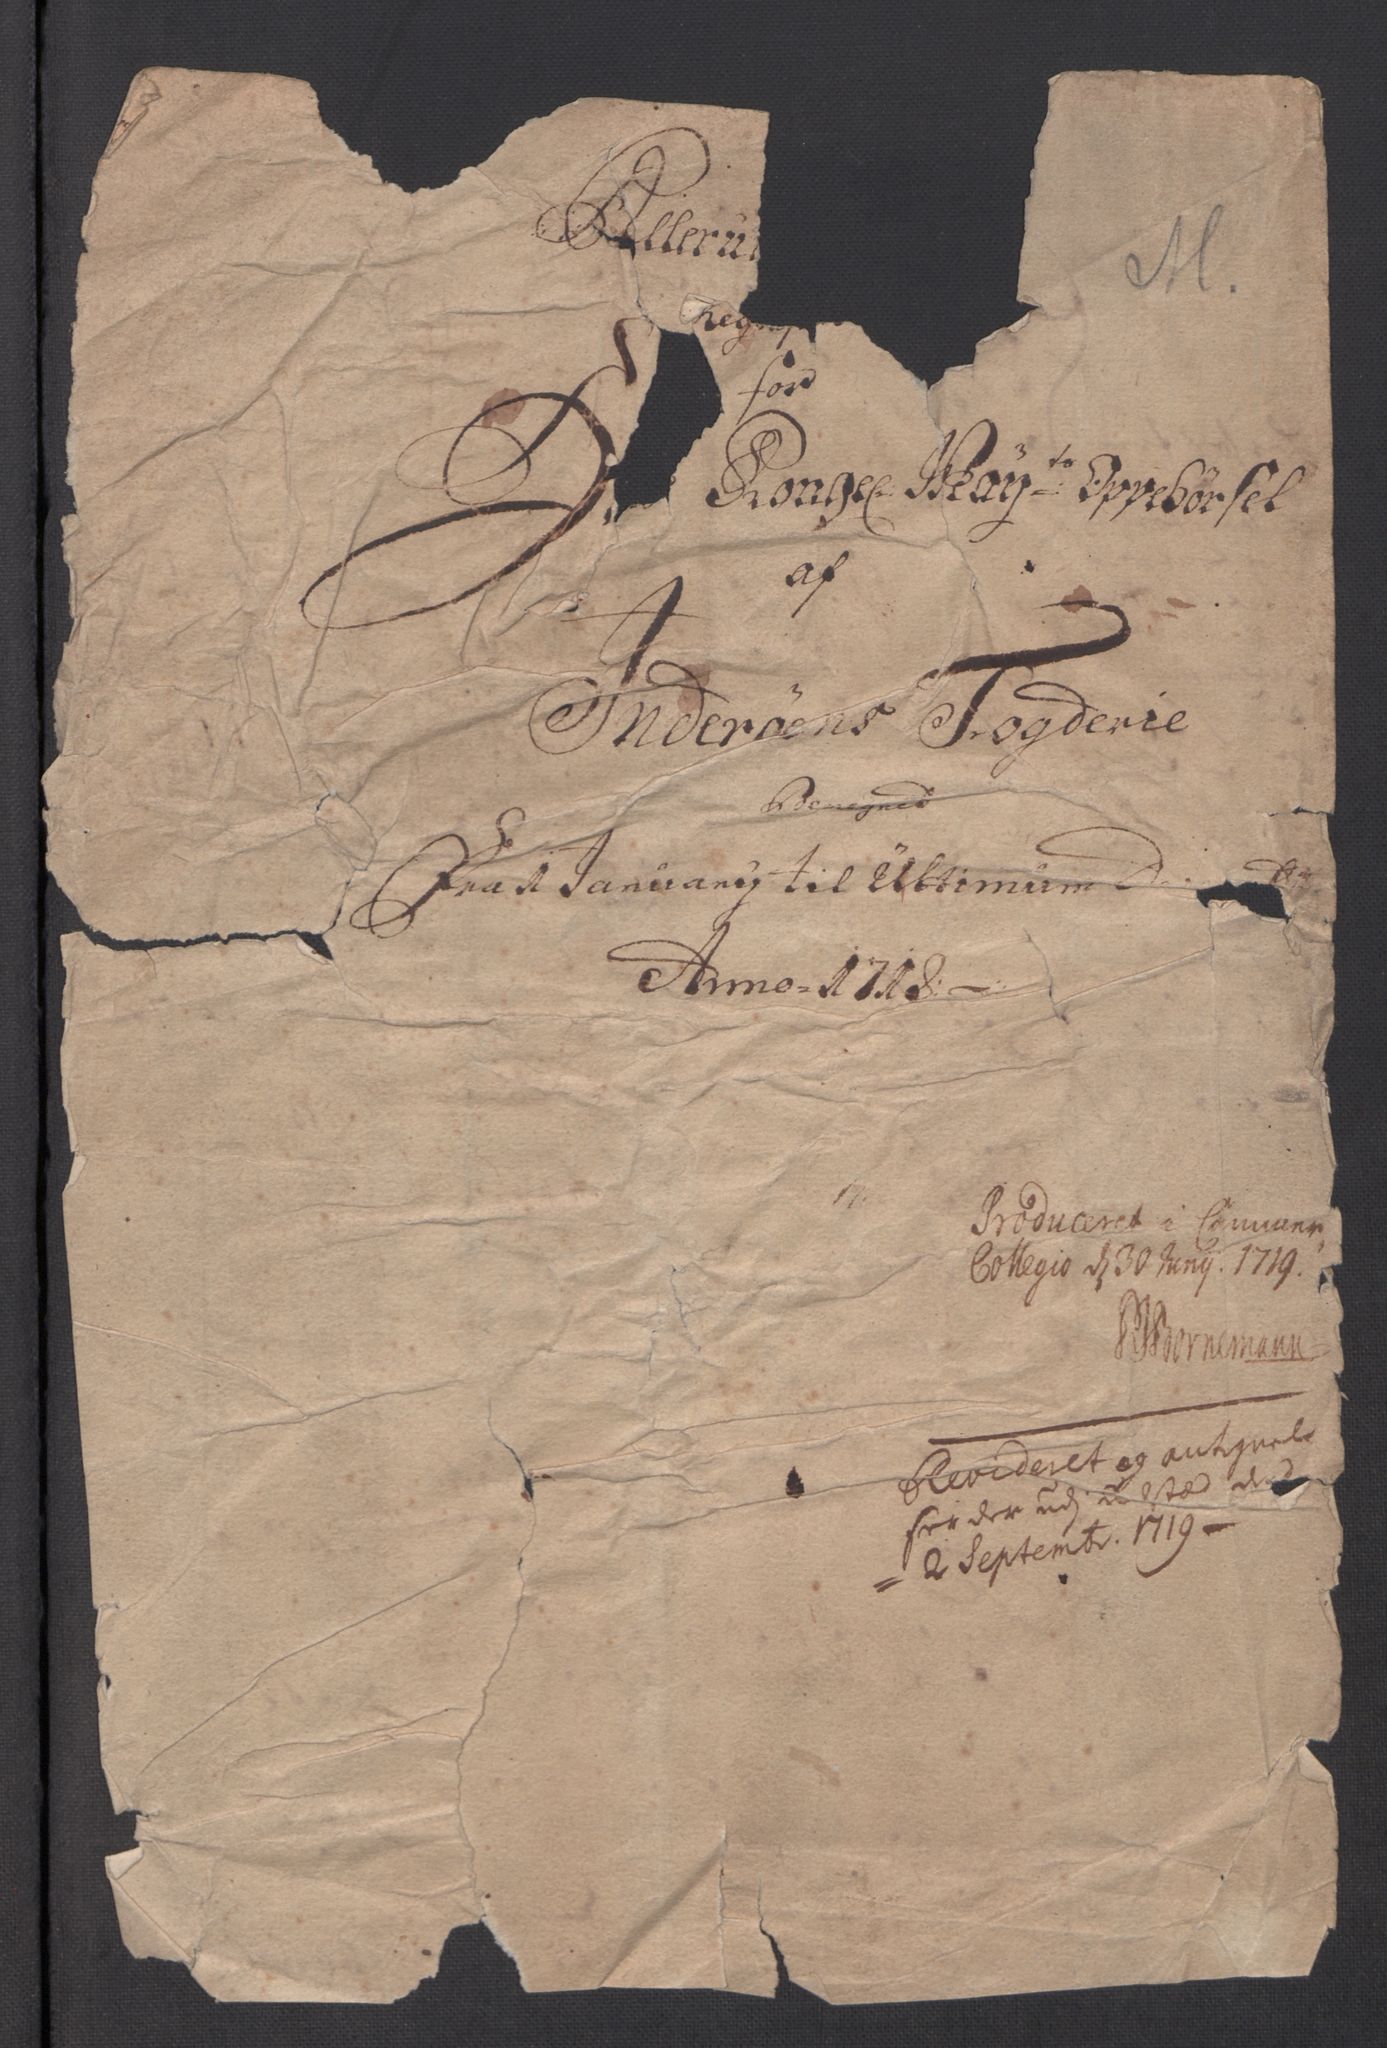 Allerun
M.
Regnsk
for
Kongel: Mayts Oppebørsel
af
Inderøens Fogderie
Beregnet
Fra 1 Januarij til Ultimum D
Anno 1718
Produceret i Cammer
Collegio d 30 Junij. 1719.
Bornemann
Revideret og antegnel
ser der udj
2 Septembr. 1719